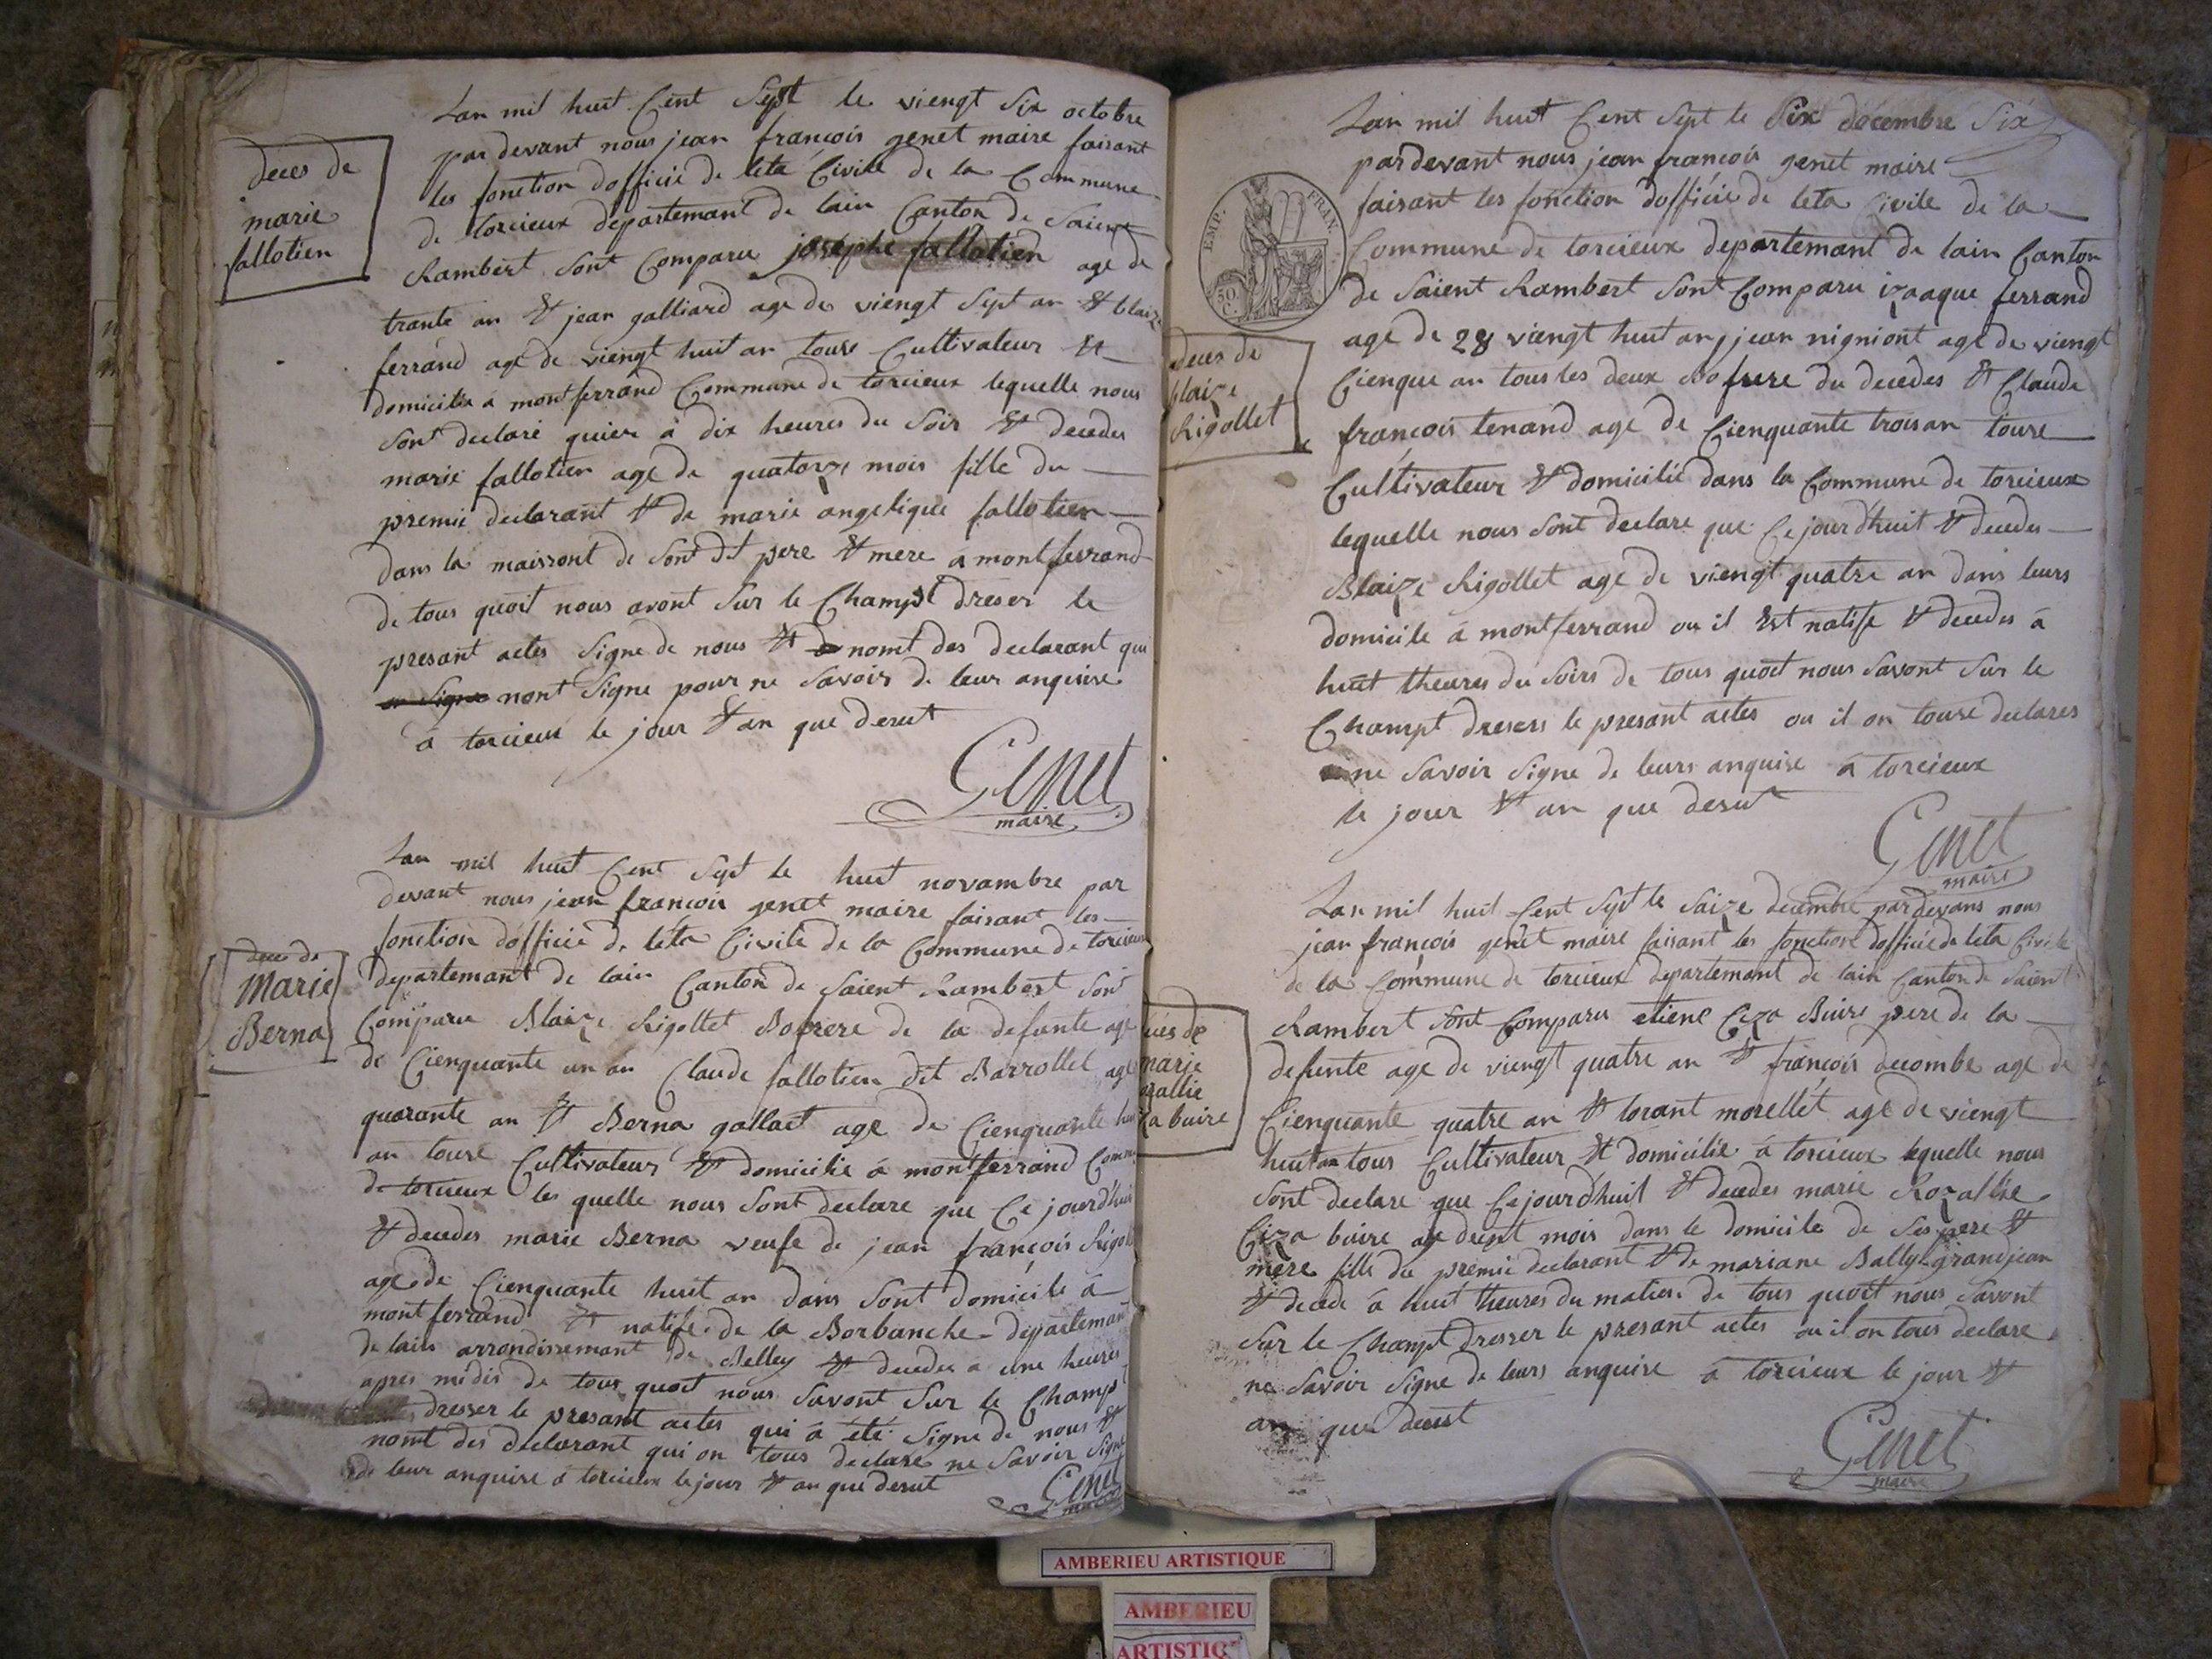 Lan mil huit Cent Sept le viengt Six octobre
par devant nous jean françois genet maire faisant
les fonction dofficié de leta Civile de la Commune
de torcieux departemant de lain Canton de Saient
Rambert Sont Comparu josephe fallotien age de
trante an et jean galliard age de viengt Sept an et blaize
ferrand age de viengt huit an tours Cultivateur et
domicilié a montferrand Commune de torcieux lequelle nous
Sont declaré quier à dix heures du Soir et decedes
marie fallotien age de quatorze mois fille du
premié declarant et de marie angelique fallotien
dans la maissont de Sont dt pere et mere a montferrand
de tous quoit nous avont Sur le Champt dreser le
presant actes Signe de nous et nomt des declarant qui
nont Signe pour ne Savoir de leur anquise
à torcieux le jour et an que desut
Genet
maire
deces de
marie
fallotien
Lan mil huit Cent Sept le huit novambre par
devant nous jean françois genet maire faisant les
fonction dofficié de léta Civile de la Commune de torcieux
departemant de lain Canton de Saient Rambert Sont
Comparu Blaize Rigollet Bofrere de la defunte age
de Cienquante un an Claude fallotien dit Barrollet age
quarante an et Berna gallact age de Cienquante hui
an tourse Cultivateur et domicilie à montferrand Comm
de torcieux les quelle nous Sont declare que Ce jourdhuit
et decedes marie Berna veufe de jean françois Rigoll
age de Cienquante huit an dans Sont domicile à
montferrand et natife de la Borbanche departemant
de lain arrondissemant de Belley et decedes a une heures
apres midis de tous quoit nous Savont Sur le Champt
dresser le presant actes qui à été Signe de nous et
nomt des declarant qui on tous declare ne Savoir Signe
de leur anquise à torcieux le jour et an que desut
Genet
maire
deces de
Marie
Berna
Lan mil huit Cent Sept le Six décembre Six
pardevant nous jean françois genet maire
faisant les fonction dofficié de leta Civile de la
Commune de torcieux departemant de lain Canton
de Saient Rambert Sont Comparu izaaque ferrand
age de 28 viengt huit an, jean nigniont age de viengt
Cienque an tous les deux Bofrere du decedes et Claude
françois tenand age de Cienquante trois an tourse
Cultivateur et domicilié dans la Commune de torcieux
lequelle nous Sont declare que Ce jourdhuit et decedes
Blaize Rigollet age de viengt quatre an dans leurs
domicile à montferrand ou il Est natife et decedes à
huit theures du Soirs de tous quoit nous Savont Sur le
Champt dresers le presant actes ou il on tourse declares
ne Savoir Signe de leurs anquise à torcieux
le jour et an que desut
Genet
maire
EMP. FRAN.
50 C.
deces de
blaize
Rigollet
Lan mil huit Cent Sept le Saize decembre par devans nous
jean françois genet maire faisant les fonction dofficié de leta Civile
de la Commune de torcieux departemant de lain Canton de Saient
Rambert Sont Comparu etiene Ciza Buire pere de la
defunte age de viengt quatre an et françois decombe age de
Cienquante quatre an et lorant morellét age de viengt
huit an tous Cultivateur et domicilié à torcieux lequelle nous
Sont declare que Cejourdhuit et decedes marie Rozallie
Ciza buire age dept mois dans le domicile de Ses pere et
mere fille du premié declarant et de mariane Bally grandjean
et decede à huit theures du matien de tous quoit nous Savont
Sur le Champt dresser le presant actes ou il on tous declare
ne Savoir Signe de leurs anquise à torcieux le jour et
an que desut
Genet
maire
ces de
marie
zallie
za buire
AMBERIEU ARTISTIQUE
AMBERIEU
ARTISTIQ